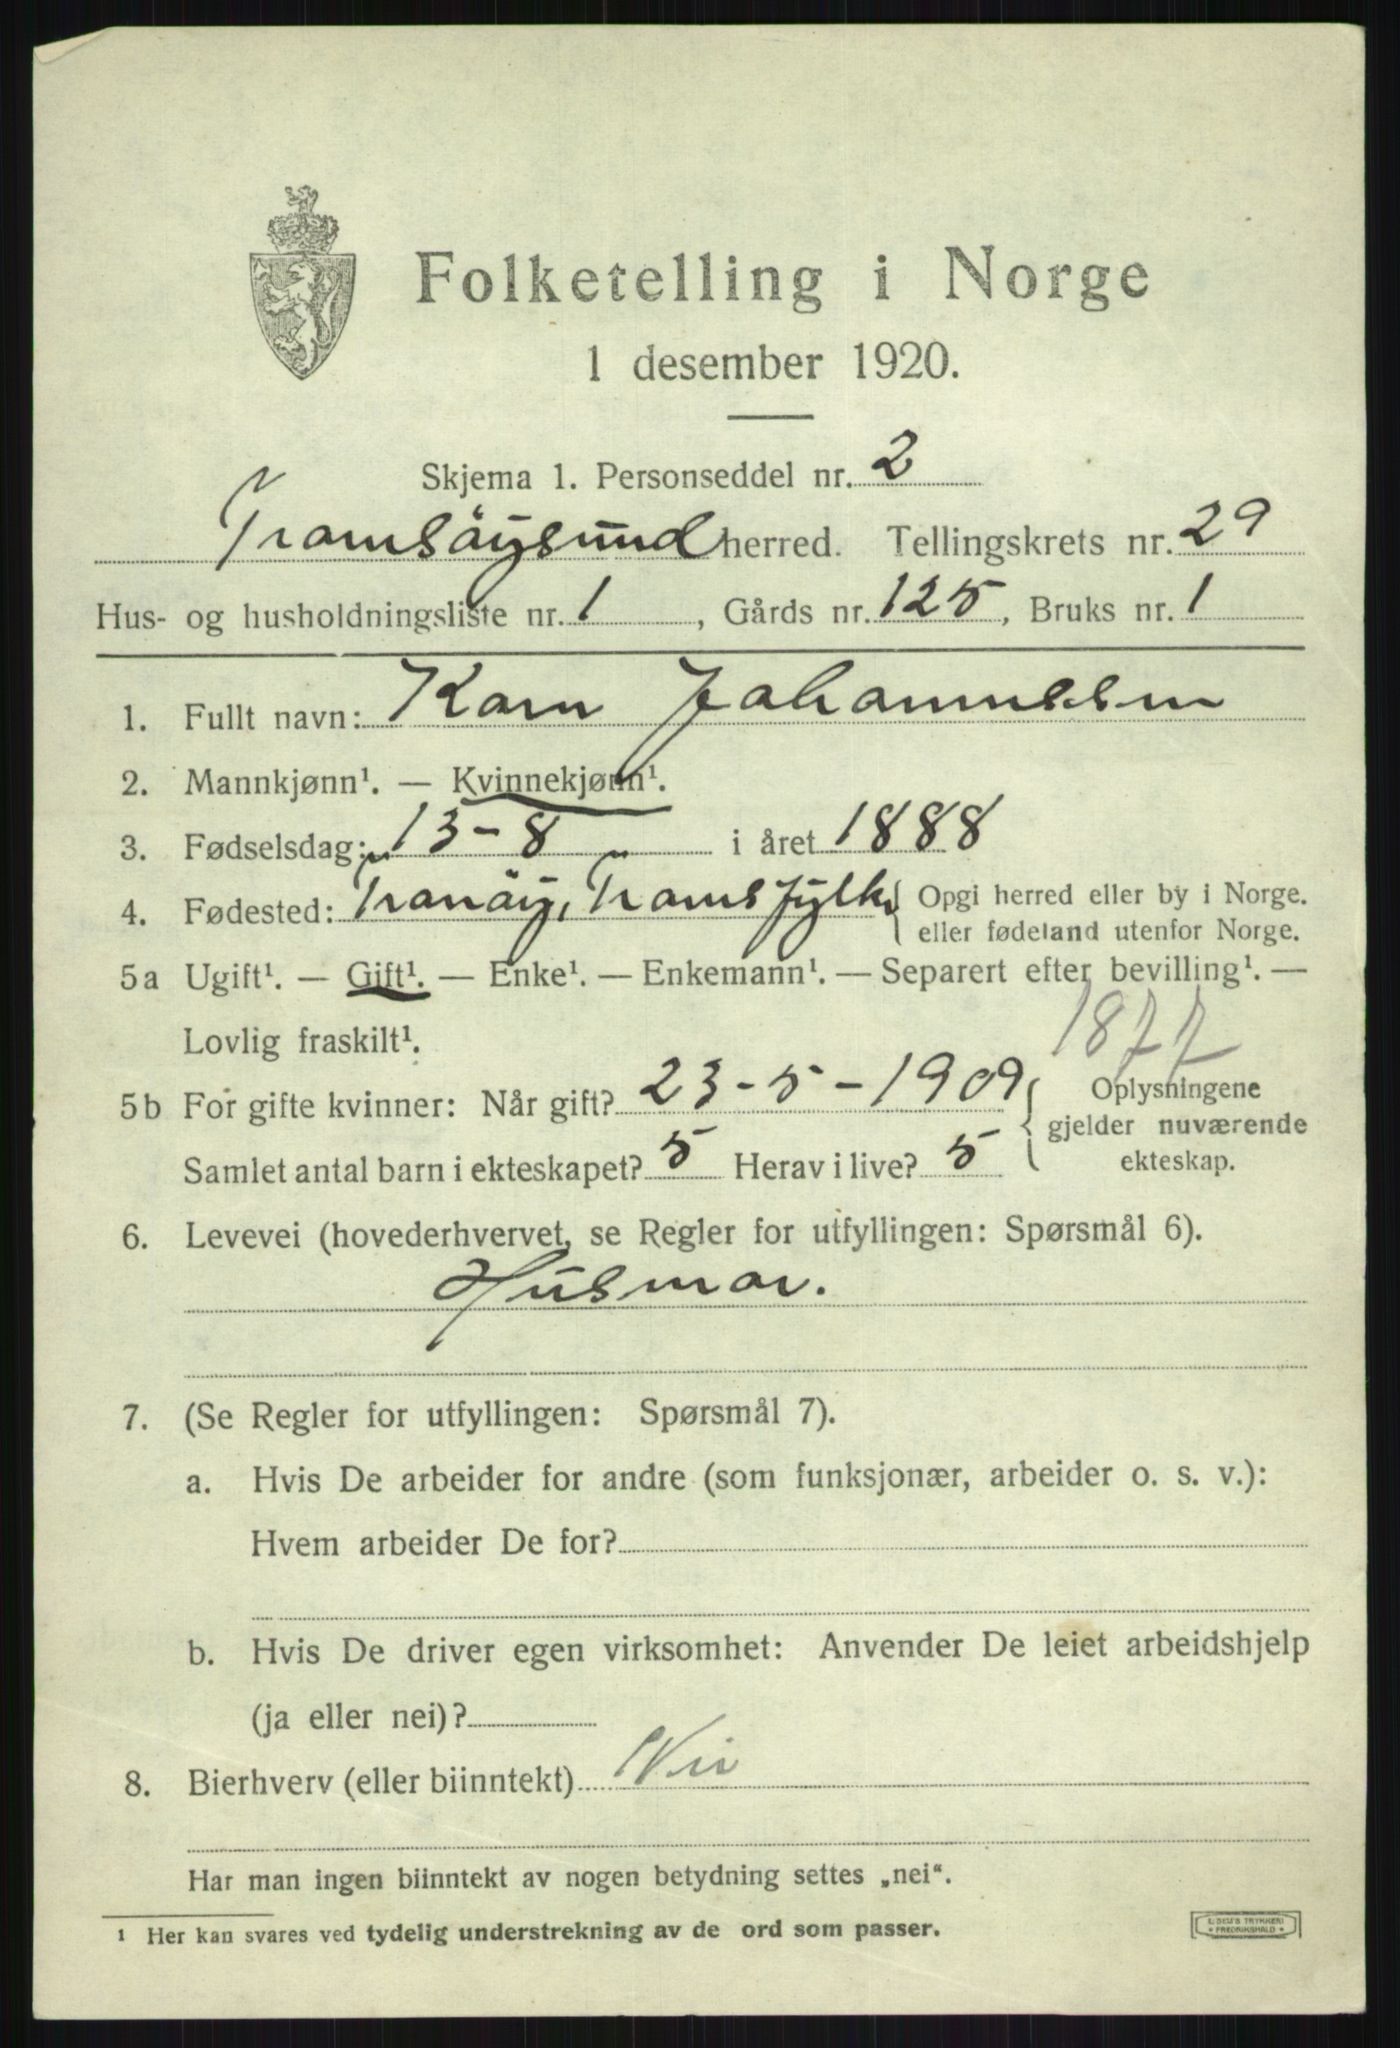 Folketelling i Norge
1 desember 1920.
Skjema 1. Personseddel nr. 2
Tromsöysund herred. Tellingskrets nr. 29
Hus- og husholdningsliste nr. 1, Gårds nr. 125, Bruks nr. 1
1. Fullt navn: Karn Johannessen
2. Mannkjønn¹. — Kvinnekjønn¹.
3. Fødselsdag: 13-8 i året 1888
4. Fødested: Tranöy, Troms fylke { Opgi herred eller by i Norge.
eller fødeland utenfor Norge.
5a Ugift¹. — Gift¹. — Enke¹. — Enkemann¹. — Separert efter bevilling¹. —
Lovlig fraskilt¹.
1877
5b For gifte kvinner: Når gift? 23-5-1909 { Oplysningene
gjelder nuværende
Samlet antal barn i ekteskapet? 5 Herav i live? 5 ekteskap.
6. Levevei (hovederhvervet, se Regler for utfyllingen: Spørsmål 6).
Husmor.
7. (Se Regler for utfyllingen: Spørsmål 7).
a. Hvis De arbeider for andre (som funksjonær, arbeider o. s. v.):
Hvem arbeider De for?
b. Hvis De driver egen virksomhet: Anvender De leiet arbeidshjelp
(ja eller nei)?
8. Bierhverv (eller biinntekt) Nei
Har man ingen biinntekt av nogen betydning settes „nei“.
¹ Her kan svares ved tydelig understrekning av de ord som passer.
E. SEM'S TRYKKERI
FREDRIKSHALD